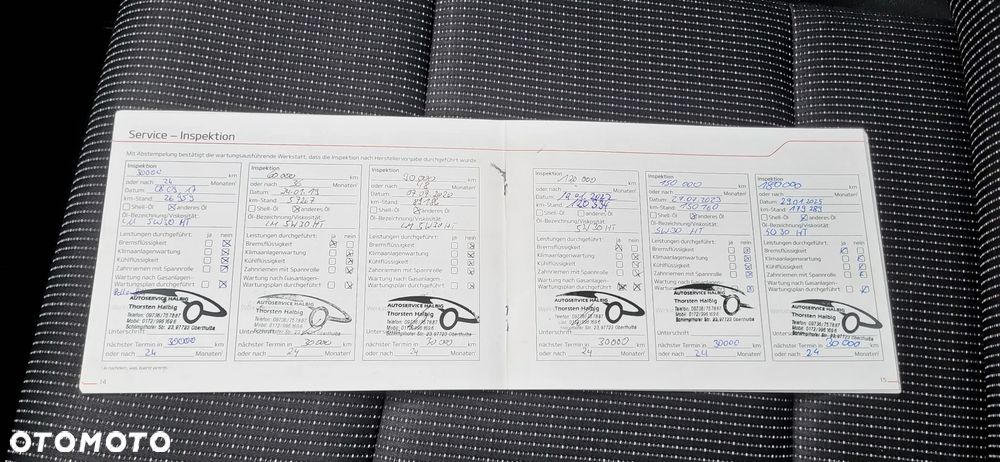 Service – Inspektion
Mit Abstempelung bestätigt die wartungsausführende Werkstatt, dass die Inspektion nach Herstellervorgabe durchgeführt wurde.
Inspektion
30000 km
oder nach 24 Monaten!
Datum 08.09.17
km-Stand 26 959
Shell-Öl anderes Öl
Öl-Bezeichnung/Viskosität:
5W30 HT
Leistungen durchgeführt: ja nein
Bremsflüssigkeit
Klimaanlagenwartung
Kühlflüssigkeit
Zahnriemen mit Spannrolle
Wartung nach Gasanlagen-
Wartungsplan durchgeführt
AUTOSERVICE HALBIG
Thorsten Halbig
Telefon: 09736/757887
Mobil: 0172/996 1696
Schlimpfhofer Str. 23, 97723 Oberthulba
Unterschrift
nächster Termin in 30000 km
oder nach 24 Monaten!
Inspektion
60 000 km
oder nach 36 Monaten!
Datum 24.01.19
km-Stand 57267
Shell-Öl anderes Öl
Öl-Bezeichnung/Viskosität:
LM 5W30 HT
Leistungen durchgeführt: ja nein
Bremsflüssigkeit
Klimaanlagenwartung
Kühlflüssigkeit
Zahnriemen mit Spannrolle
Wartung nach Gasanlagen-
Wartungsplan durchgeführt
AUTOSERVICE HALBIG
Thorsten Halbig
Unterschrift
nächster Termin in 30 000 km
oder nach 24 Monaten!
Inspektion
90 000 km
oder nach 48 Monaten!
Datum 07.07.2020
km-Stand
Shell-Öl anderes Öl
Öl-Bezeichnung/Viskosität:
LM 5W30 HT
Leistungen durchgeführt: ja nein
Bremsflüssigkeit
Klimaanlagenwartung
Kühlflüssigkeit
Zahnriemen mit Spannrolle
Wartung nach Gasanlagen-
Wartungsplan durchgeführt
AUTOSERVICE HALBIG
Thorsten Halbig
Unterschrift
nächster Termin in 30 000 km
oder nach 24 Monaten!
14
Inspektion
120 000 km
oder nach Monaten!
Datum
km-Stand
Shell-Öl anderes Öl
Öl-Bezeichnung/Viskosität:
5W30 HT
Leistungen durchgeführt: ja nein
Bremsflüssigkeit
Klimaanlagenwartung
Kühlflüssigkeit
Zahnriemen mit Spannrolle
Wartung nach Gasanlagen-
Wartungsplan durchgeführt
AUTOSERVICE HALBIG
Thorsten Halbig
Schlimpfhofer Str. 23, 97723 Oberthulba
Unterschrift
nächster Termin in 30000 km
oder nach 24 Monaten!
Inspektion
150 000 km
oder nach Monaten!
Datum 27.02.2023
km-Stand 150 760
Shell-Öl anderes Öl
Öl-Bezeichnung/Viskosität:
5W30 HT
Leistungen durchgeführt: ja nein
Bremsflüssigkeit
Klimaanlagenwartung
Kühlflüssigkeit
Zahnriemen mit Spannrolle
Wartung nach Gasanlagen-
Wartungsplan durchgeführt
AUTOSERVICE HALBIG
Thorsten Halbig
Telefon: 09736/757887
Mobil: 0172/996 1696
Schlimpfhofer Str. 23, 97723 Oberthulba
Unterschrift
nächster Termin in 30000 km
oder nach 24 Monaten!
Inspektion
180000 km
oder nach Monaten!
Datum 29.01.2025
km-Stand 179 289
Shell-Öl anderes Öl
Öl-Bezeichnung/Viskosität:
5W30 HT
Leistungen durchgeführt: ja nein
Bremsflüssigkeit
Klimaanlagenwartung
Kühlflüssigkeit
Zahnriemen mit Spannrolle
Wartung nach Gasanlagen-
Wartungsplan durchgeführt
AUTOSERVICE HALBIG
Thorsten Halbig
Telefon: 09736/757887
Mobil: 0172/996 1696
Schlimpfhofer Str. 23, 97723 Oberthulba
Unterschrift
nächster Termin in 30 000 km
oder nach 24 Monaten!
15
OTOMOTO